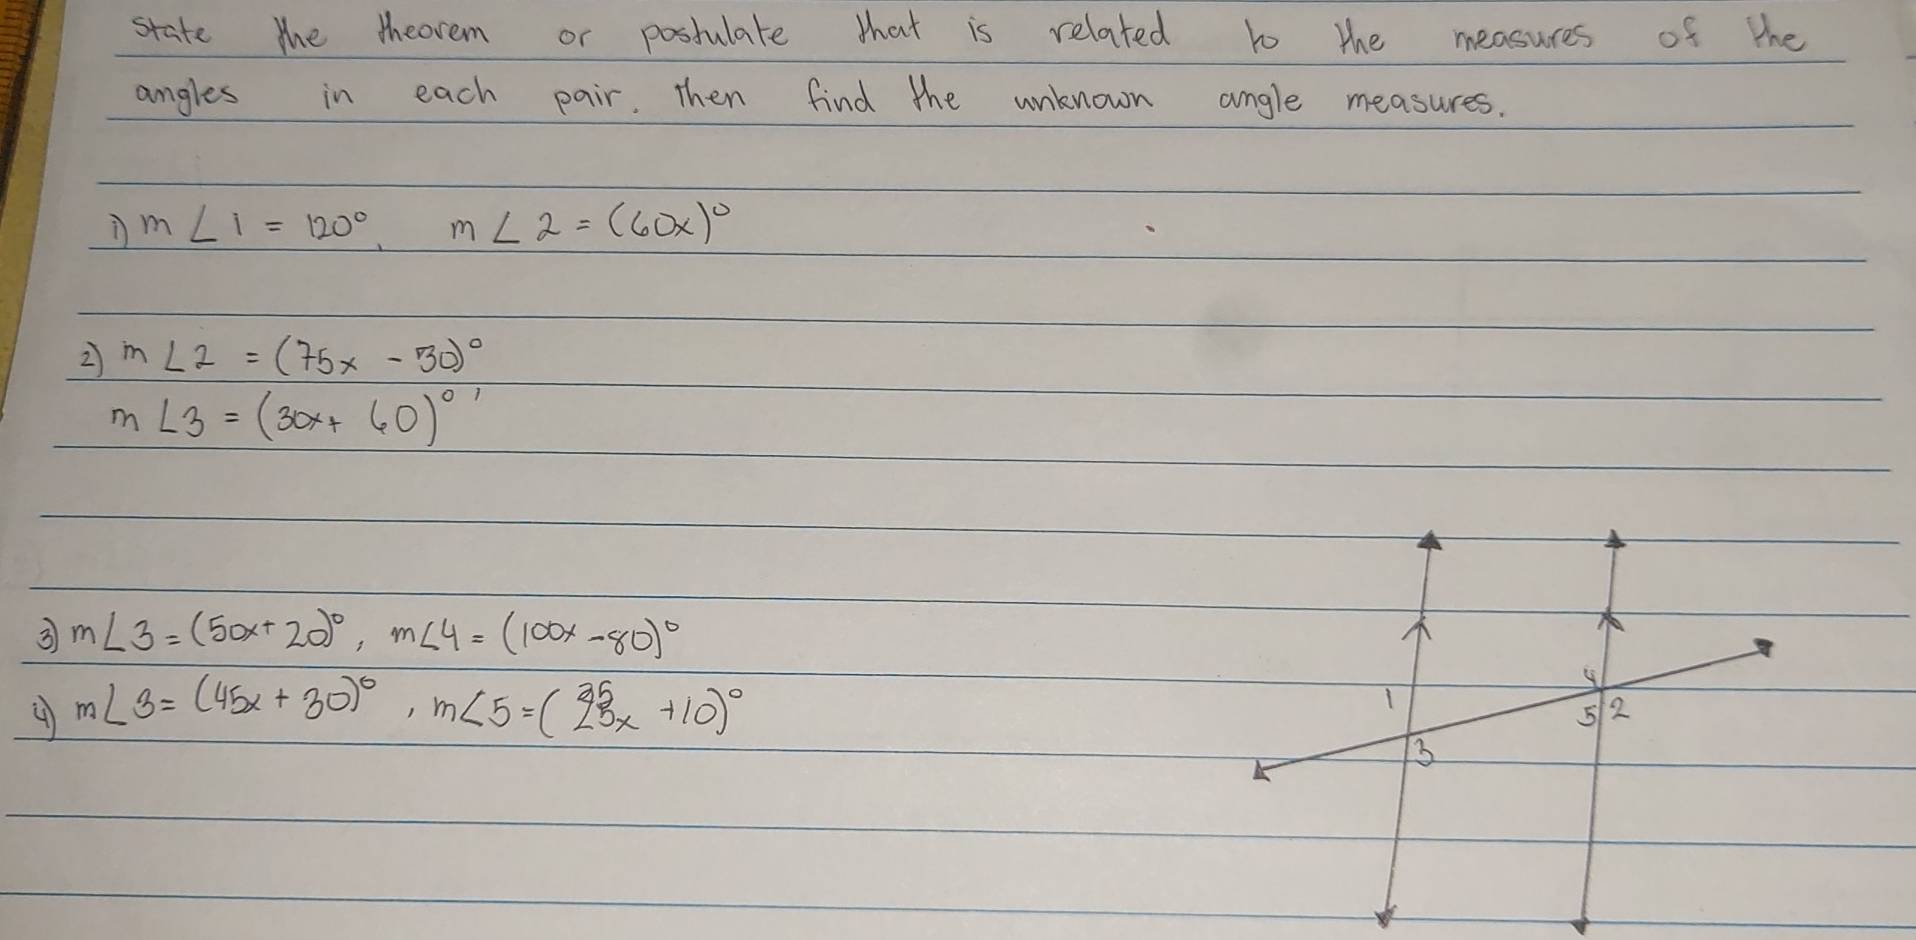 state the theorem or postulate that is related to the measures of the
angles in each pair. Then find the unknown angle measures.
1) m∠1 = 120°, m∠2 = (60x)°
2) m∠2 = (75x - 30)°,
m∠3 = (30x + 60)°
3) m∠3 = (50x + 20)°, m∠4 = (100x - 80)°
4) m∠3 = (45x + 30)°, m∠5 = (x + 10)°
1
4
5 2
3